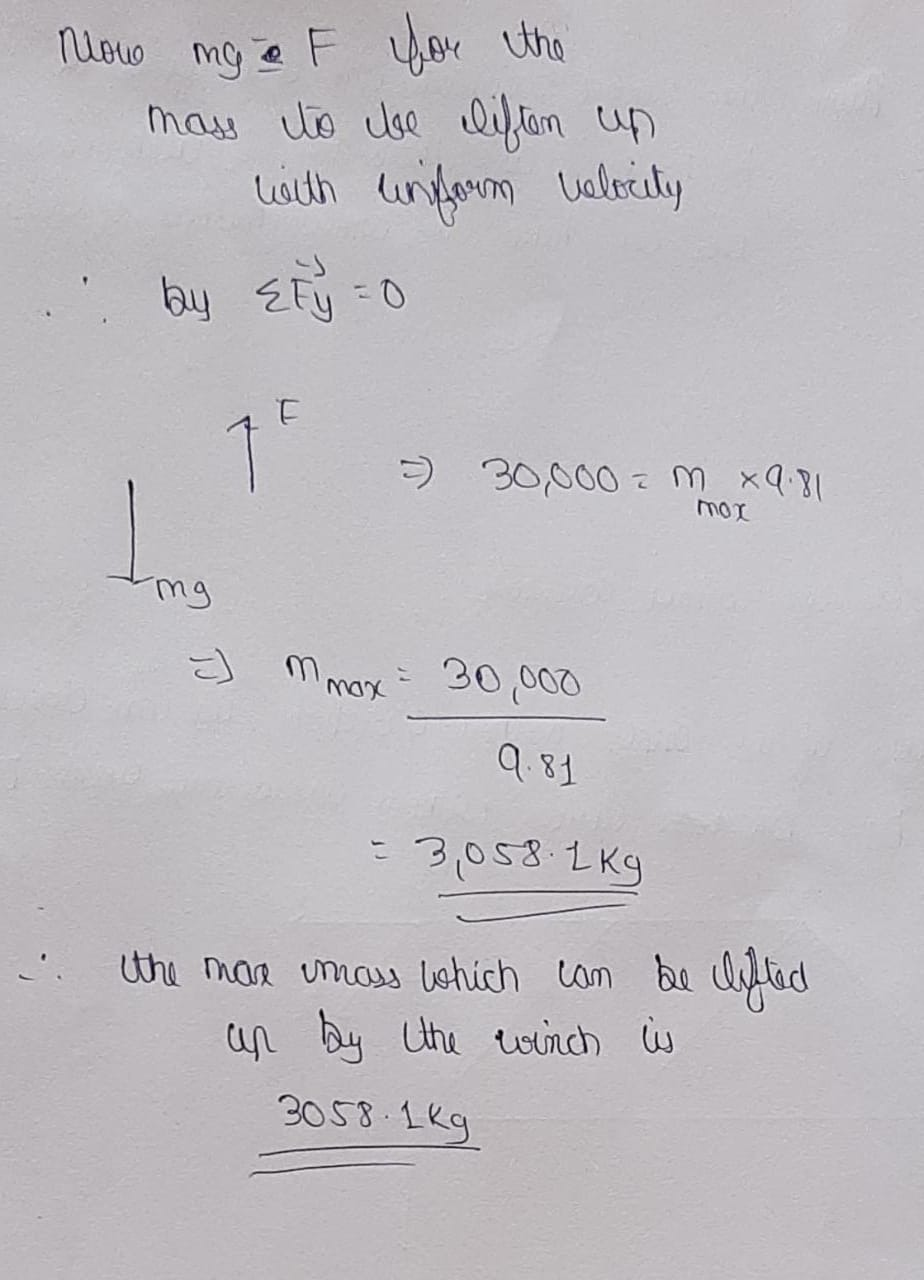 Now mg = F for the
mass to be liften up
with uniform velocity
∴ by ΣF⃗y = 0
F
⇒ 30,000 = m max × 9.81
mg
⇒ m max = 30,000
9.81
= 3,058.1 Kg
∴ the max mass which can be lifted
up by the winch is
3058.1 Kg